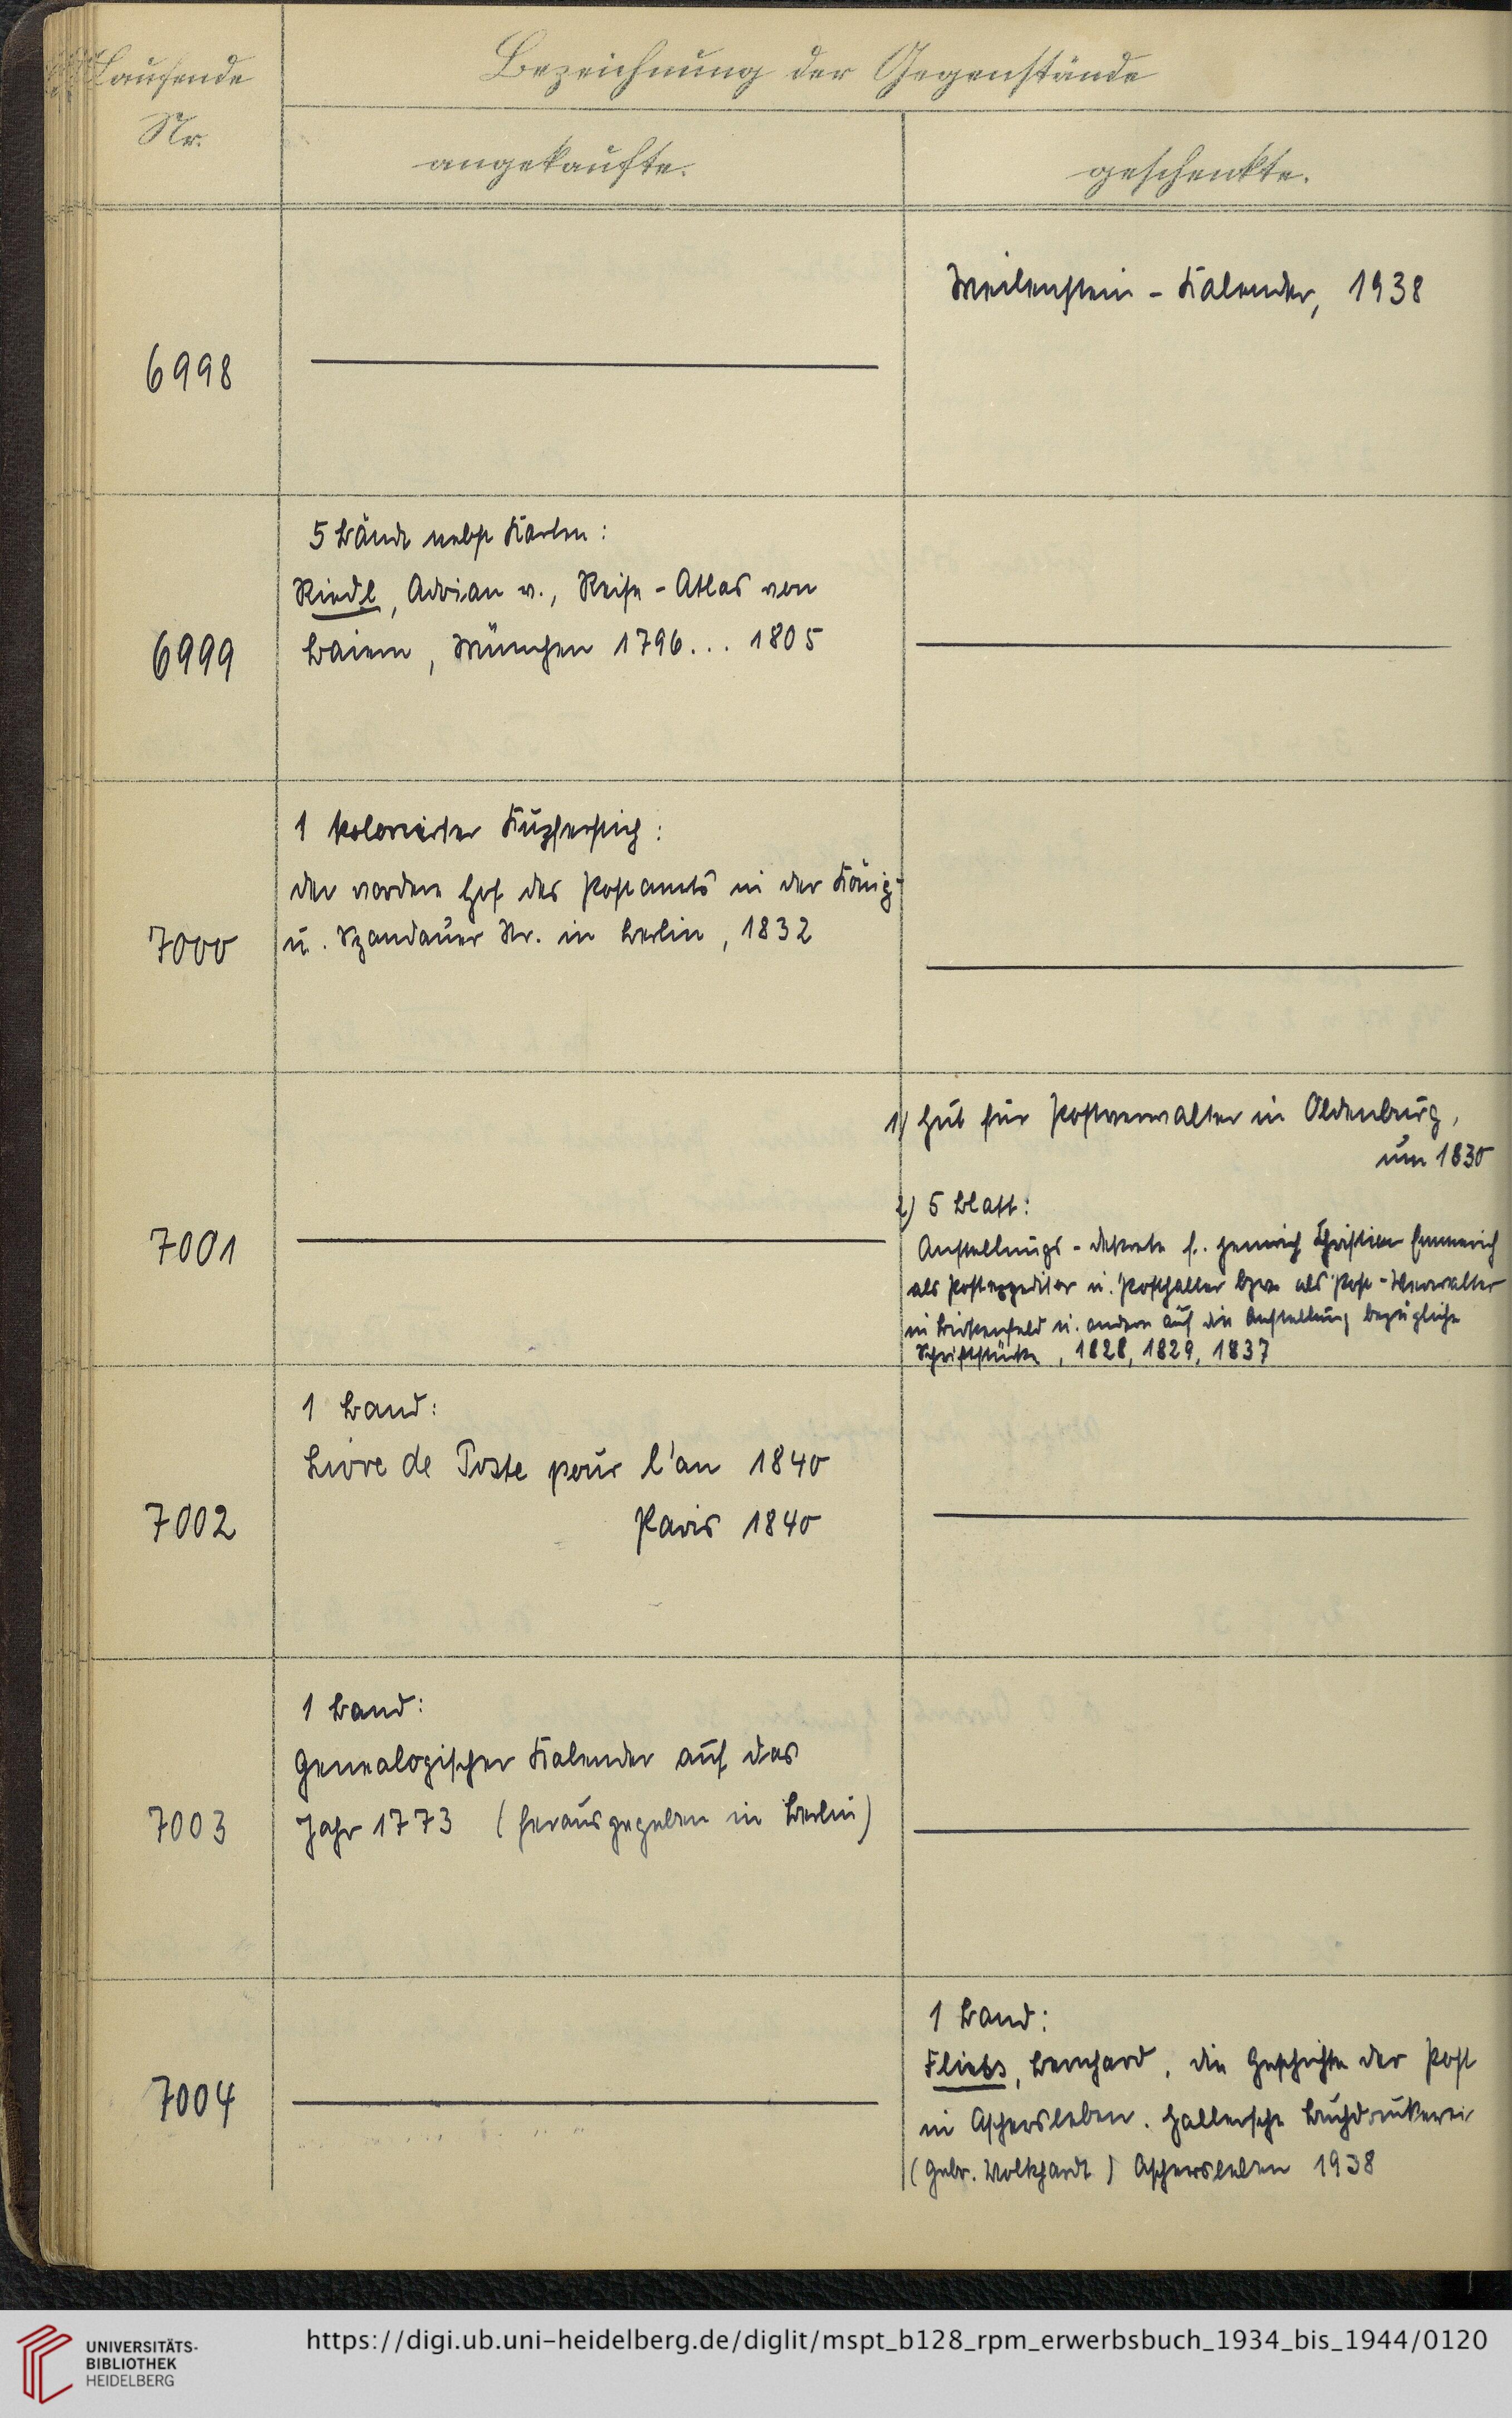 Laufende
Nr.
Bezeichnung der Gegenstände
angekaufte.
geschenkte.
6998
Meilenstein - Kalender, 1938
6999
5 Bände nebst Karten:
Riedl, Adrian v., Reise - Atlas von
Baiern, München 1796... 1805
7000
1 kolorierter Kupferstich:
der vordere Hof des Postamts in der König-
u. Spandauer Str. in Berlin, 1832
7001
1) Hut für Postverwalter in Oldenburg,
um 1830
2) 5 Blatt:
Anstellungs - dekrete f. Heinrich Christian Emmerich
als Postexpeditor u. Posthalter bzw. als Post - Verwalter
in Birkenfeld u. andere auf die Anstellung bezügliche
Schriftstücke, 1828, 1829, 1837
7002
1 Band:
Livre de Poste pour l'an 1840
Paris 1840
7003
1 Band:
Genealogischer Kalender auf das
Jahr 1773 (herausgegeben in Berlin)
7004
1 Band:
Flieks, Bernhard, die Geschichte der Post
in Aschersleben. Hallersche Buchdruckerei
(Gebr. Wolkhardt) Aschersleben 1938
UNIVERSITÄTS-
BIBLIOTHEK
HEIDELBERG
https://digi.ub.uni-heidelberg.de/diglit/mspt_b128_rpm_erwerbsbuch_1934_bis_1944/0120